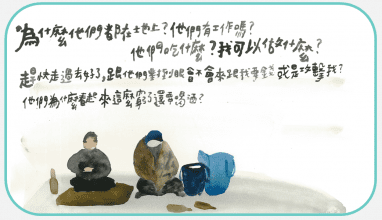 為什麼他們都在土地上？他們有工作嗎？
他們吃什麼？我可以做什麼？
趕快走過去好了，跟他們對到眼會不會來跟我要錢或是攻擊我？
他們為什麼看起來這麼窮了還要喝酒？